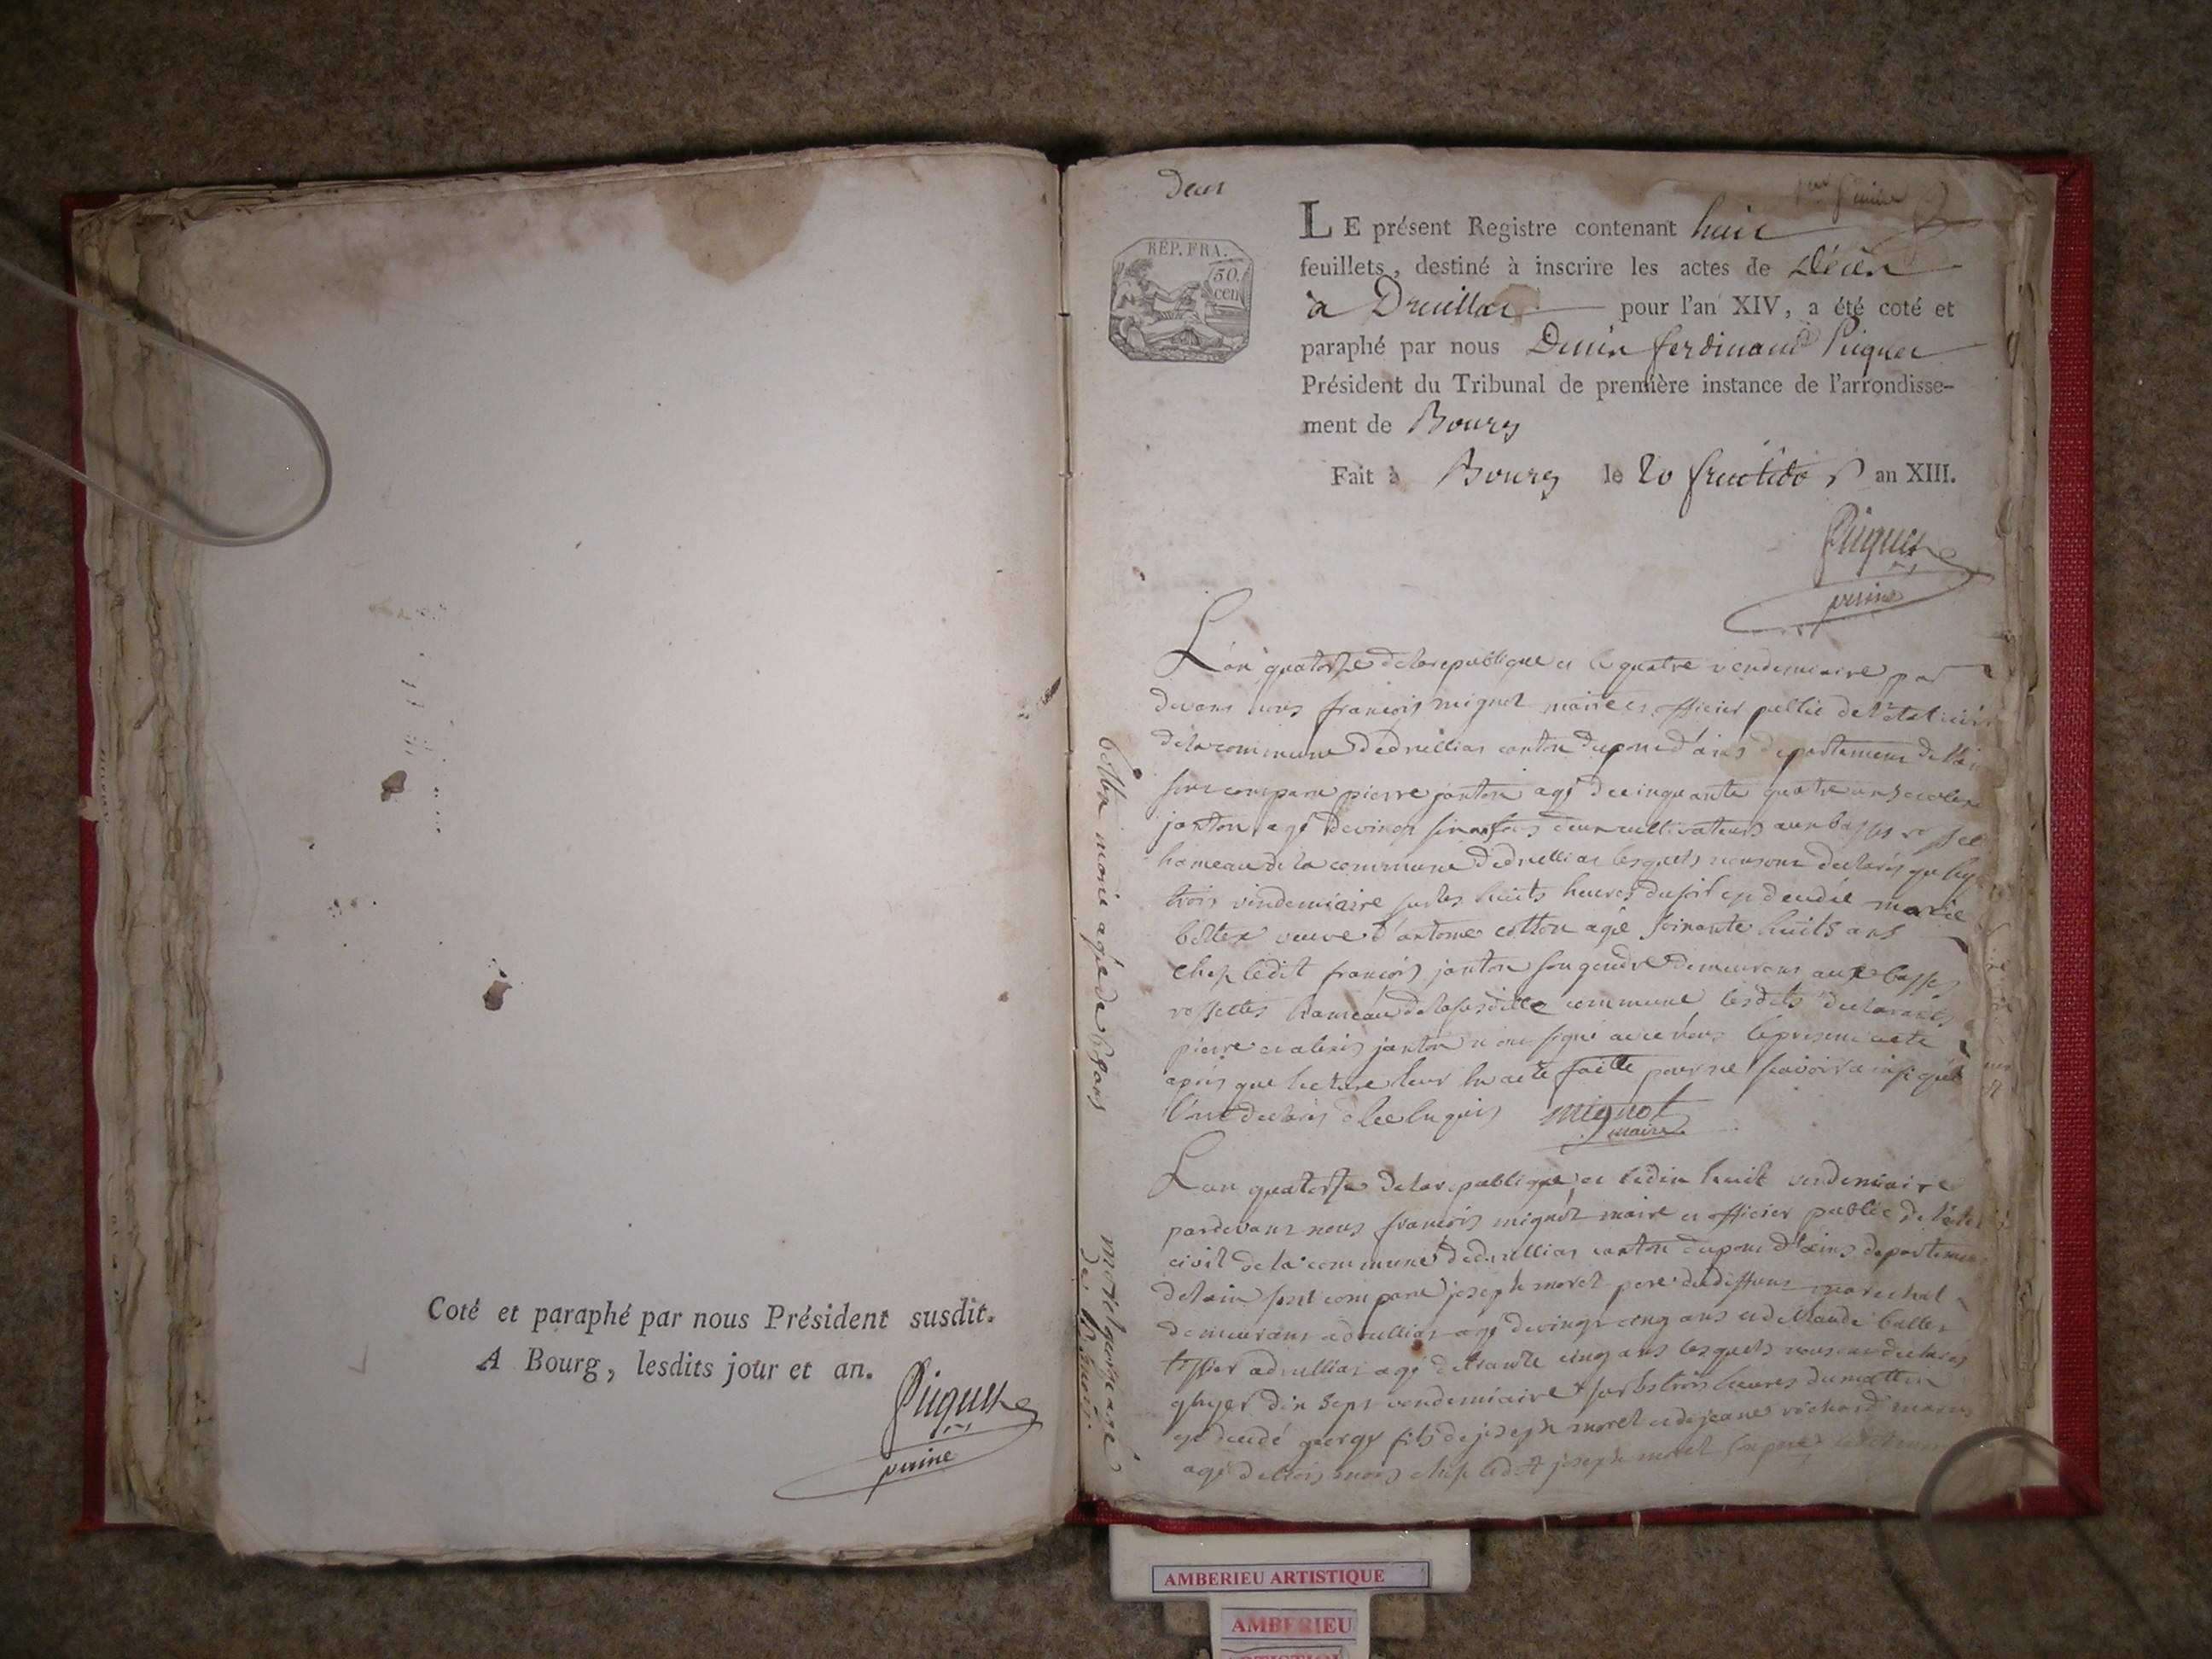 Coté et paraphé par nous Président susdit.
A Bourg, lesdits jour et an.
Piquet
Deces
REP. FRA.
50
cen
LE présent Registre contenant huit
feuillets, destiné à inscrire les actes de Décès
à Druillat pour l'an XIV, a été coté et
paraphé par nous Denis ferdinand Piquet
Président du Tribunal de première instance de l'arrondisse-
ment de Bourg
Fait à Bourg le 20 fructidor an XIII.
Piquet
L'an quatorze de la republique et le quatre vendemiaire par
devant nous françois mignot maire et officier public de l'etat civil
de la commune de druillias canton du pont d'ains departement de l'ain
sont comparu pierre janton agé de cinquante quatre ans
janton agé de vingt cultivateurs aux basses
hameau de la commune de druillias lesquels nous ont declarés que
trois vendemiaire sur les huits heures du soir est decedée marie
bottex veuve d'antoine cotton agée soixante huits ans
chez ledit françois janton son gendre demeurant aux basses
rossettes hameau de la susditte commune lesdits declarants
pierre et alexis janton n'ont signé avec nous le present acte
après que lecture leur en a eté faitte pour ne sçavoir
l'ont declarés de ce enquis mignot
maire
bottex marie agée de 68 ans
L'an quatorze de la republique et le dix huit vendemiaire
pardevant nous françois mignot maire et officier public de l'etat
civil de la commune de druillias canton du pont d'ains departement
de l'ain sont comparu joseph morel pere du deffunt marechal
demeurant a druillias agé de vingt cinq ans et de Claude
tissier a druillias agé de trante cinq ans lesquels nous ont declarés
qu'hyer dix sept vendemiaire sur les trois heures du mattin
est decedé george fils de joseph morel et de jeane richard
agé de trois mois chez ledit joseph morel son pere
morel george agé
de 3 mois
AMBERIEU ARTISTIQUE
AMBERIEU